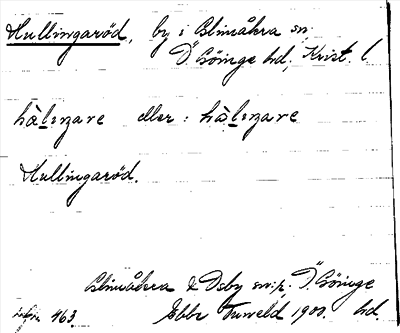 Hullingaröd, by i Glimåkra sn,
Ö Göinge hd, Krist. l
hàlıŋare eller: hàlıŋare
Hullingaröd.
Glimåkra & Osby sn:r. Ö. Göinge
463 Ebbe Tuneld 1900. hd.